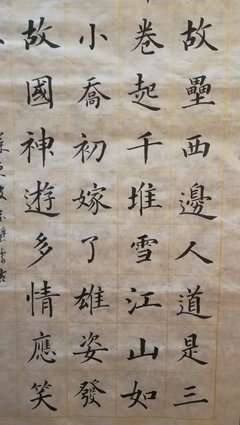 故壘西邊人道是三
卷起千堆雪江山如
小喬初嫁了雄姿發
故國神遊多情應笑